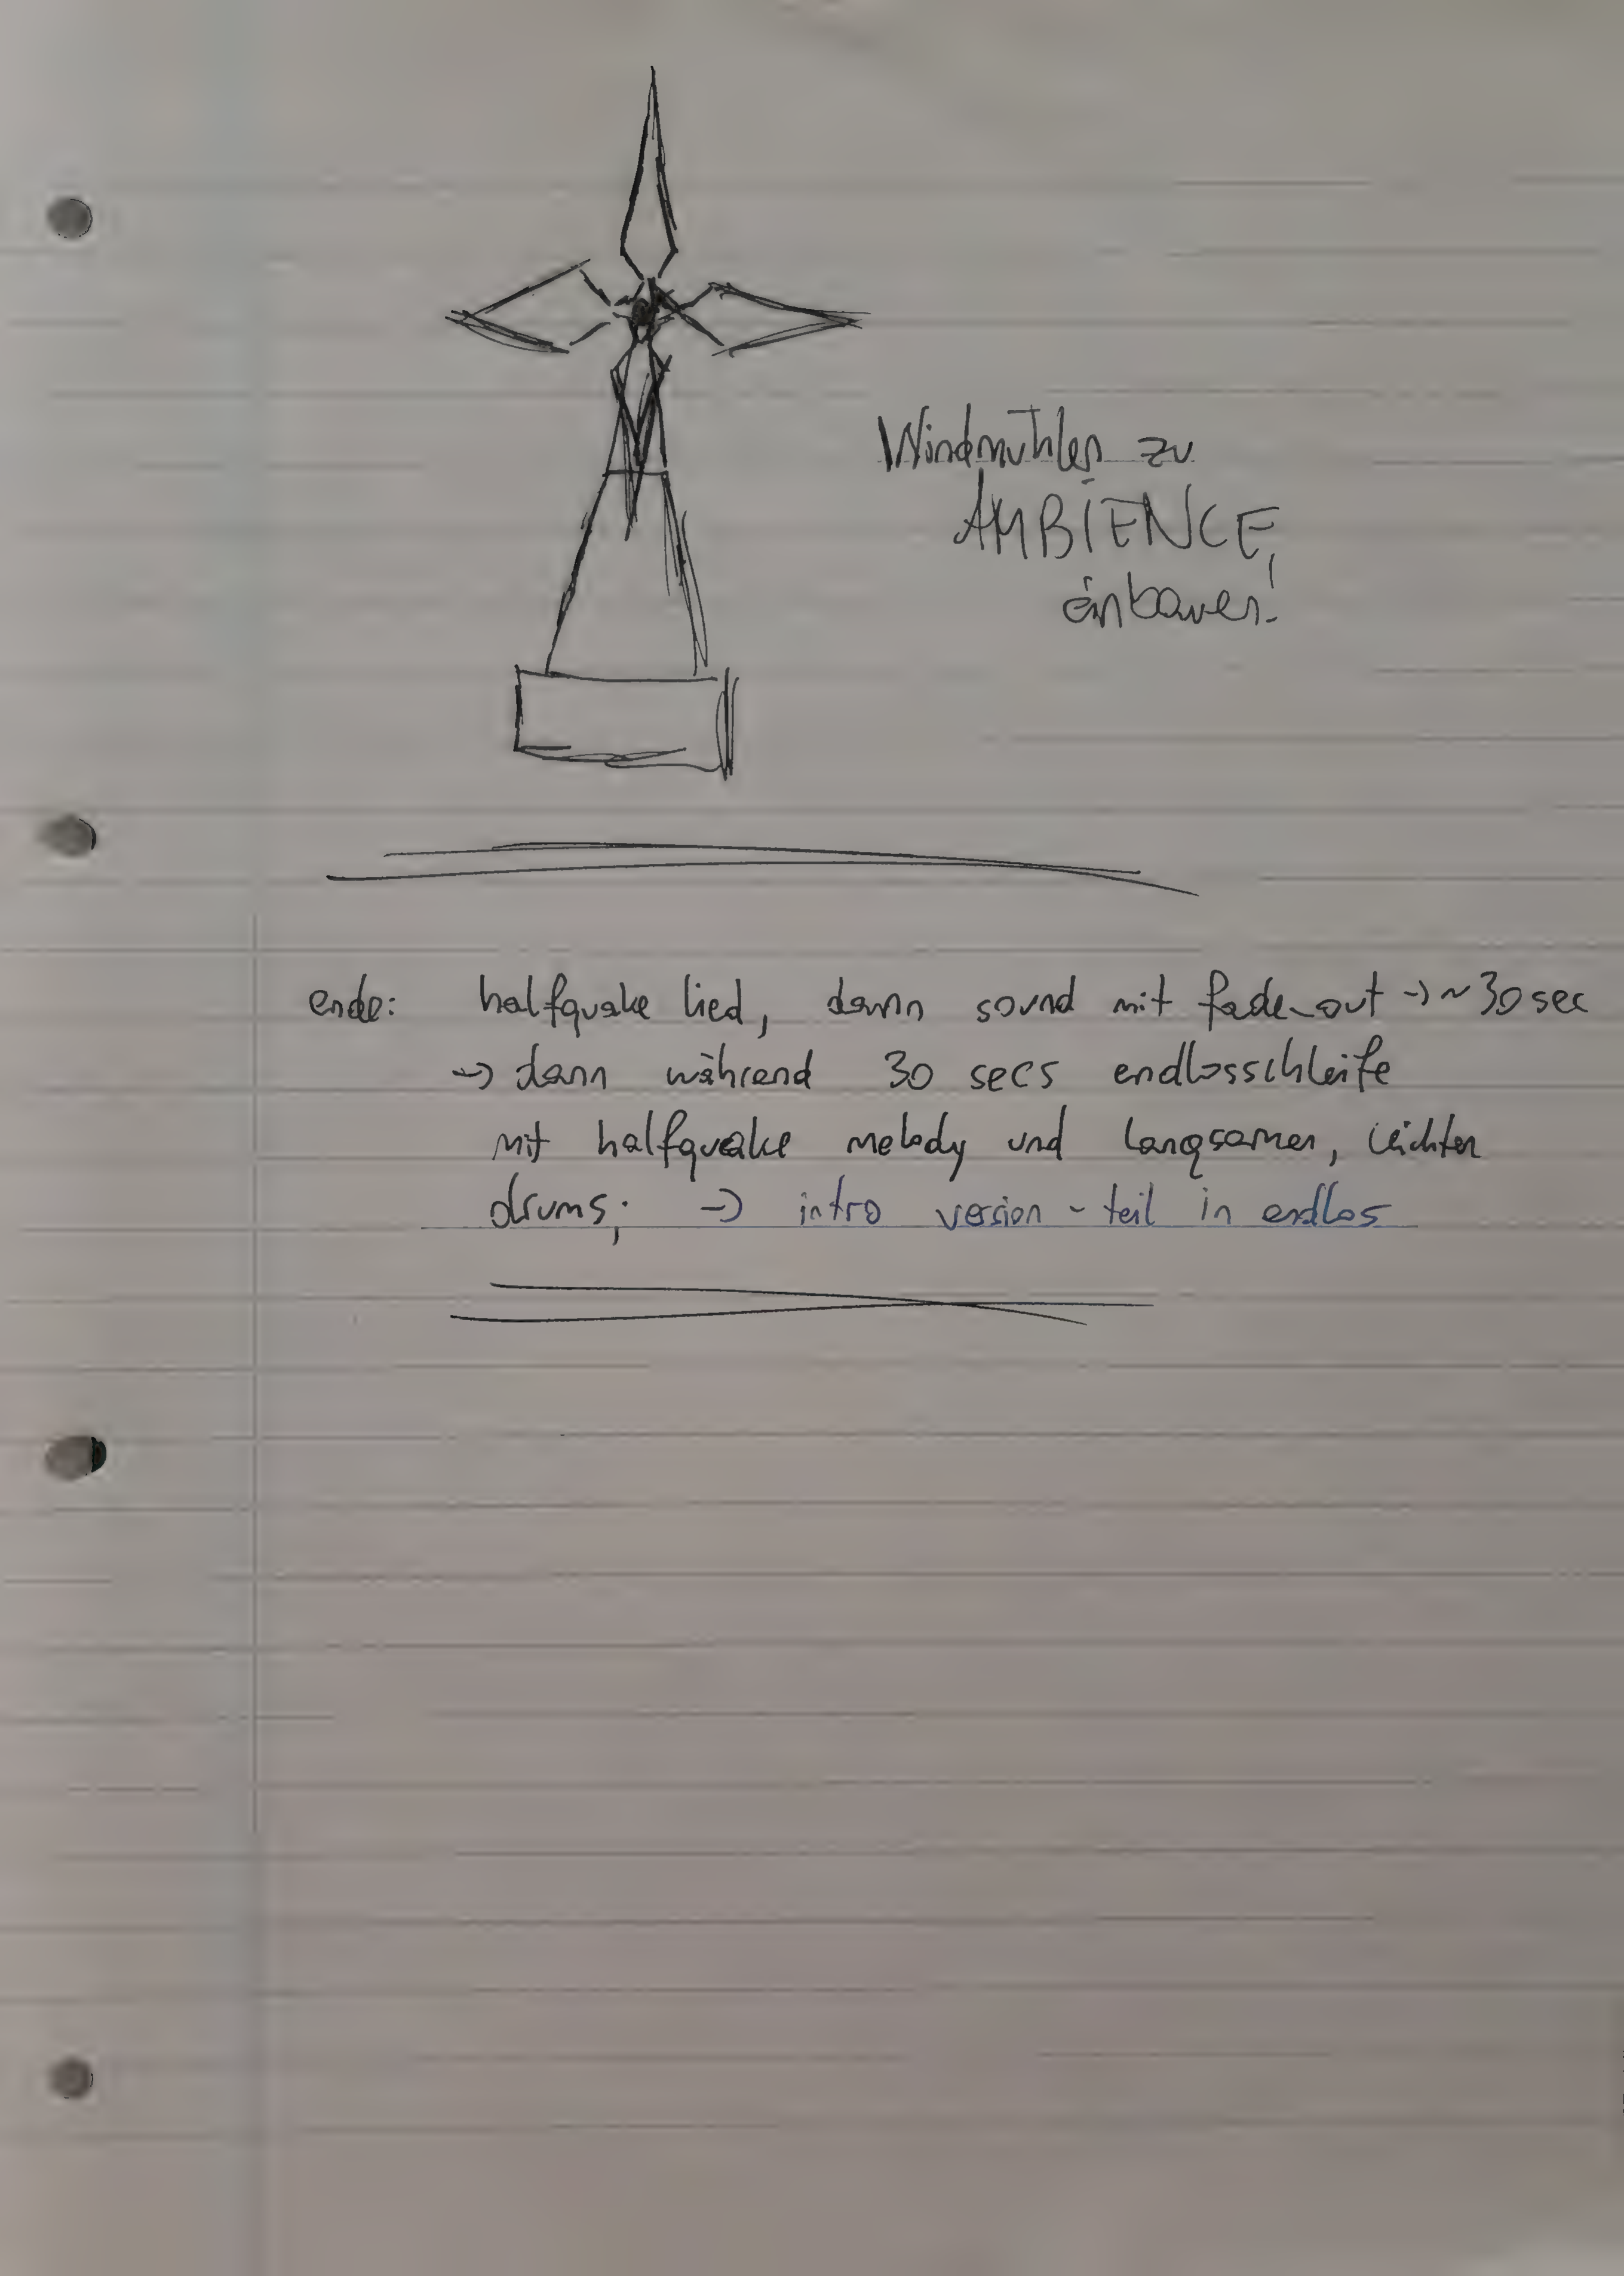 Windmühlen zu
AMBIENCE
einbauen!
ende: halfquake lied, dann sound mit fade-out → ~30 sec
→ dann während 30 secs endlosschleife
mit halfquake melody und langsamen, leichten
drums; → intro version - teil in endlos